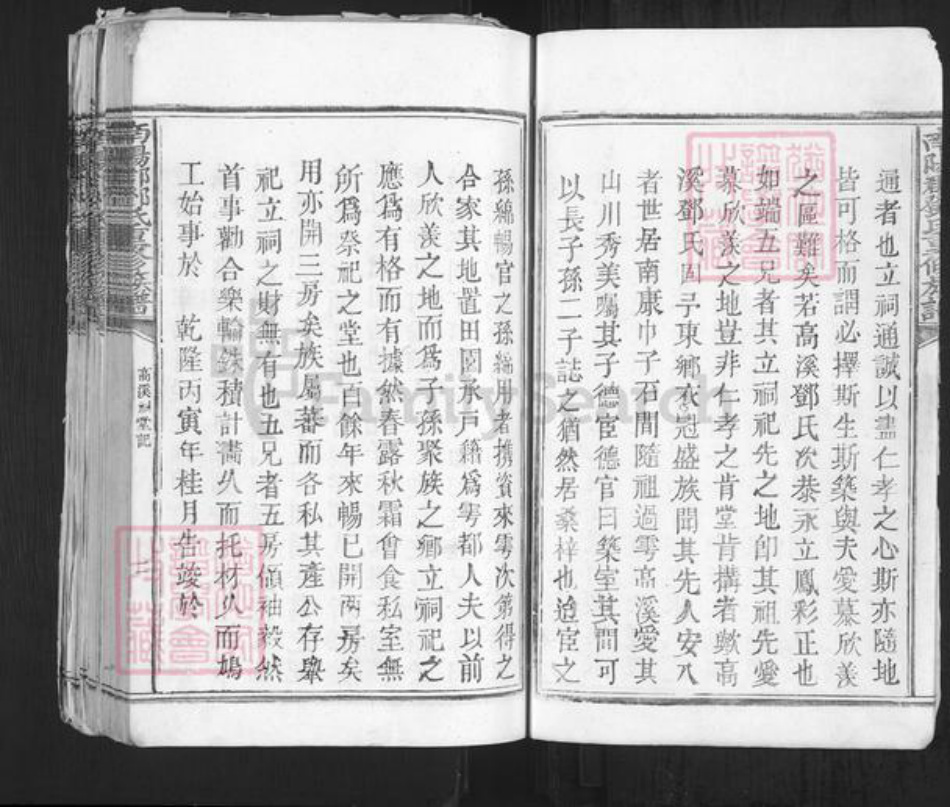 通者也立祠通誠以盡仁孝之心斯亦隨地
皆可格而謂必擇斯生斯築與夫愛慕欣羨
之區難矣若高溪鄧氏次恭永立鳳彩正也
如端五兄者其立祠祀先之地卽其祖先愛
慕欣羨之地豈非仁孝之肯堂肯搆者歟高
溪鄧氏固雩東鄉衣冠盛族聞其先人安八
者世居南康巾子石間隨祖過雩高溪愛其
山川秀美囑其子德宦德官曰築室其間可
以長子孫二子誌之猶然居桑梓也迨宦之
孫綿暢官之孫綿用者携資來雩次第得之
合家其地置田園承戸籍爲雩都人夫以前
人欣羨之地而爲子孫聚族之鄉立祠祀之
應爲有格而有據然春露秋霜曾食私室無
所爲祭祀之堂也百餘年來暢已開兩房矣
用亦開三房矣族屬蕃而各私其產公存舉
祀立祠之財無有也五兄者五房領袖毅然
首事勸合樂輪銖積計畫久而托材久而鳩
工始事於 乾隆丙寅年桂月告竣於
高溪祠堂記
FamilySearch